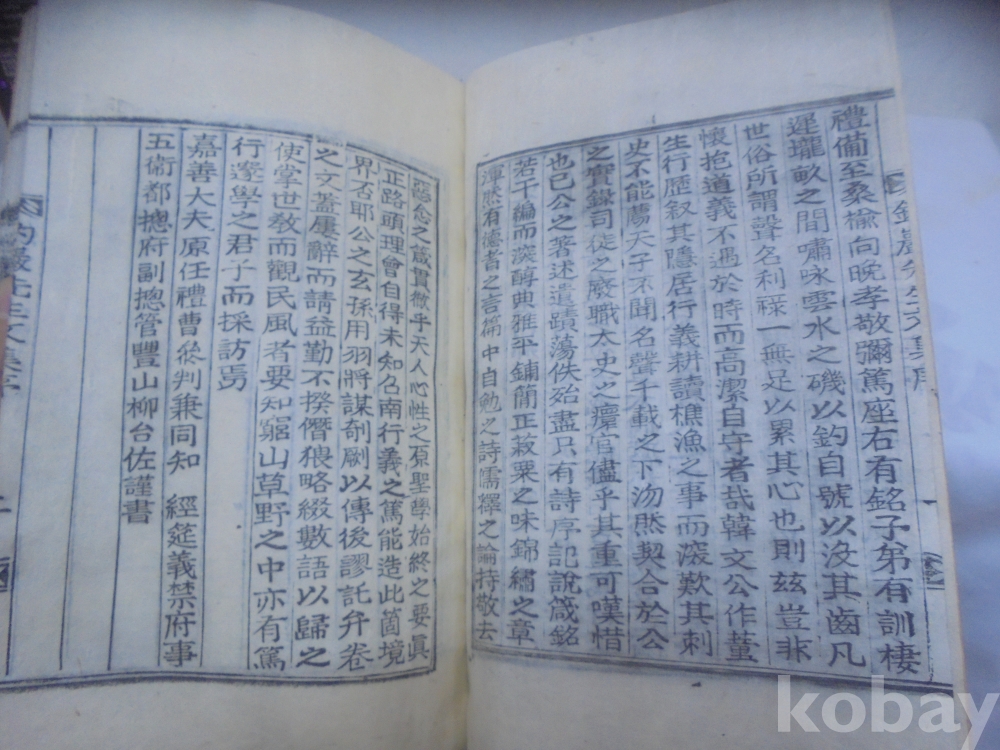 禮備至桑榆向晚孝敬彌篤座右有銘子弟有訓棲
遲壠畝之間嘯咏雲水之磯以釣自號以沒其齒凡
世俗所謂聲名利祿一無足以累其心也則玆豈非
懷抱道義不遇於時而高潔自守者哉韓文公作董
生行歷叙其隱居行義耕讀樵漁之事而深歎其刺
史不能薦天子不聞名聲千載之下沕然契合於公
之實錄司徒之廢職太史之癏官儘乎其重可嘆惜
也已公之著述遺蹟蕩佚殆盡只有詩序記說箴銘
若干編而深醇典雅平鋪簡正菽粟之味錦繡之章
渾然有德者之言篇中自勉之詩儒釋之論持敬去
惡念之箴貫徹乎天人心性之原聖學始終之要眞
正路頭理會自得未知召南行義之篤能造此箇境
界否耶公之玄孫用羽將謀剞劂以傳後謬託弁卷
之文蓋屢辭而請益勤不揆僭猥略綴數語以歸之
使掌世敎而觀民風者要知窮山草野之中亦有篤
行邃學之君子而採訪焉
嘉善大夫原任禮曹叅判兼同知 經筵義禁府事
五衛都摠府副摠管豐山柳台佐謹書
kobay